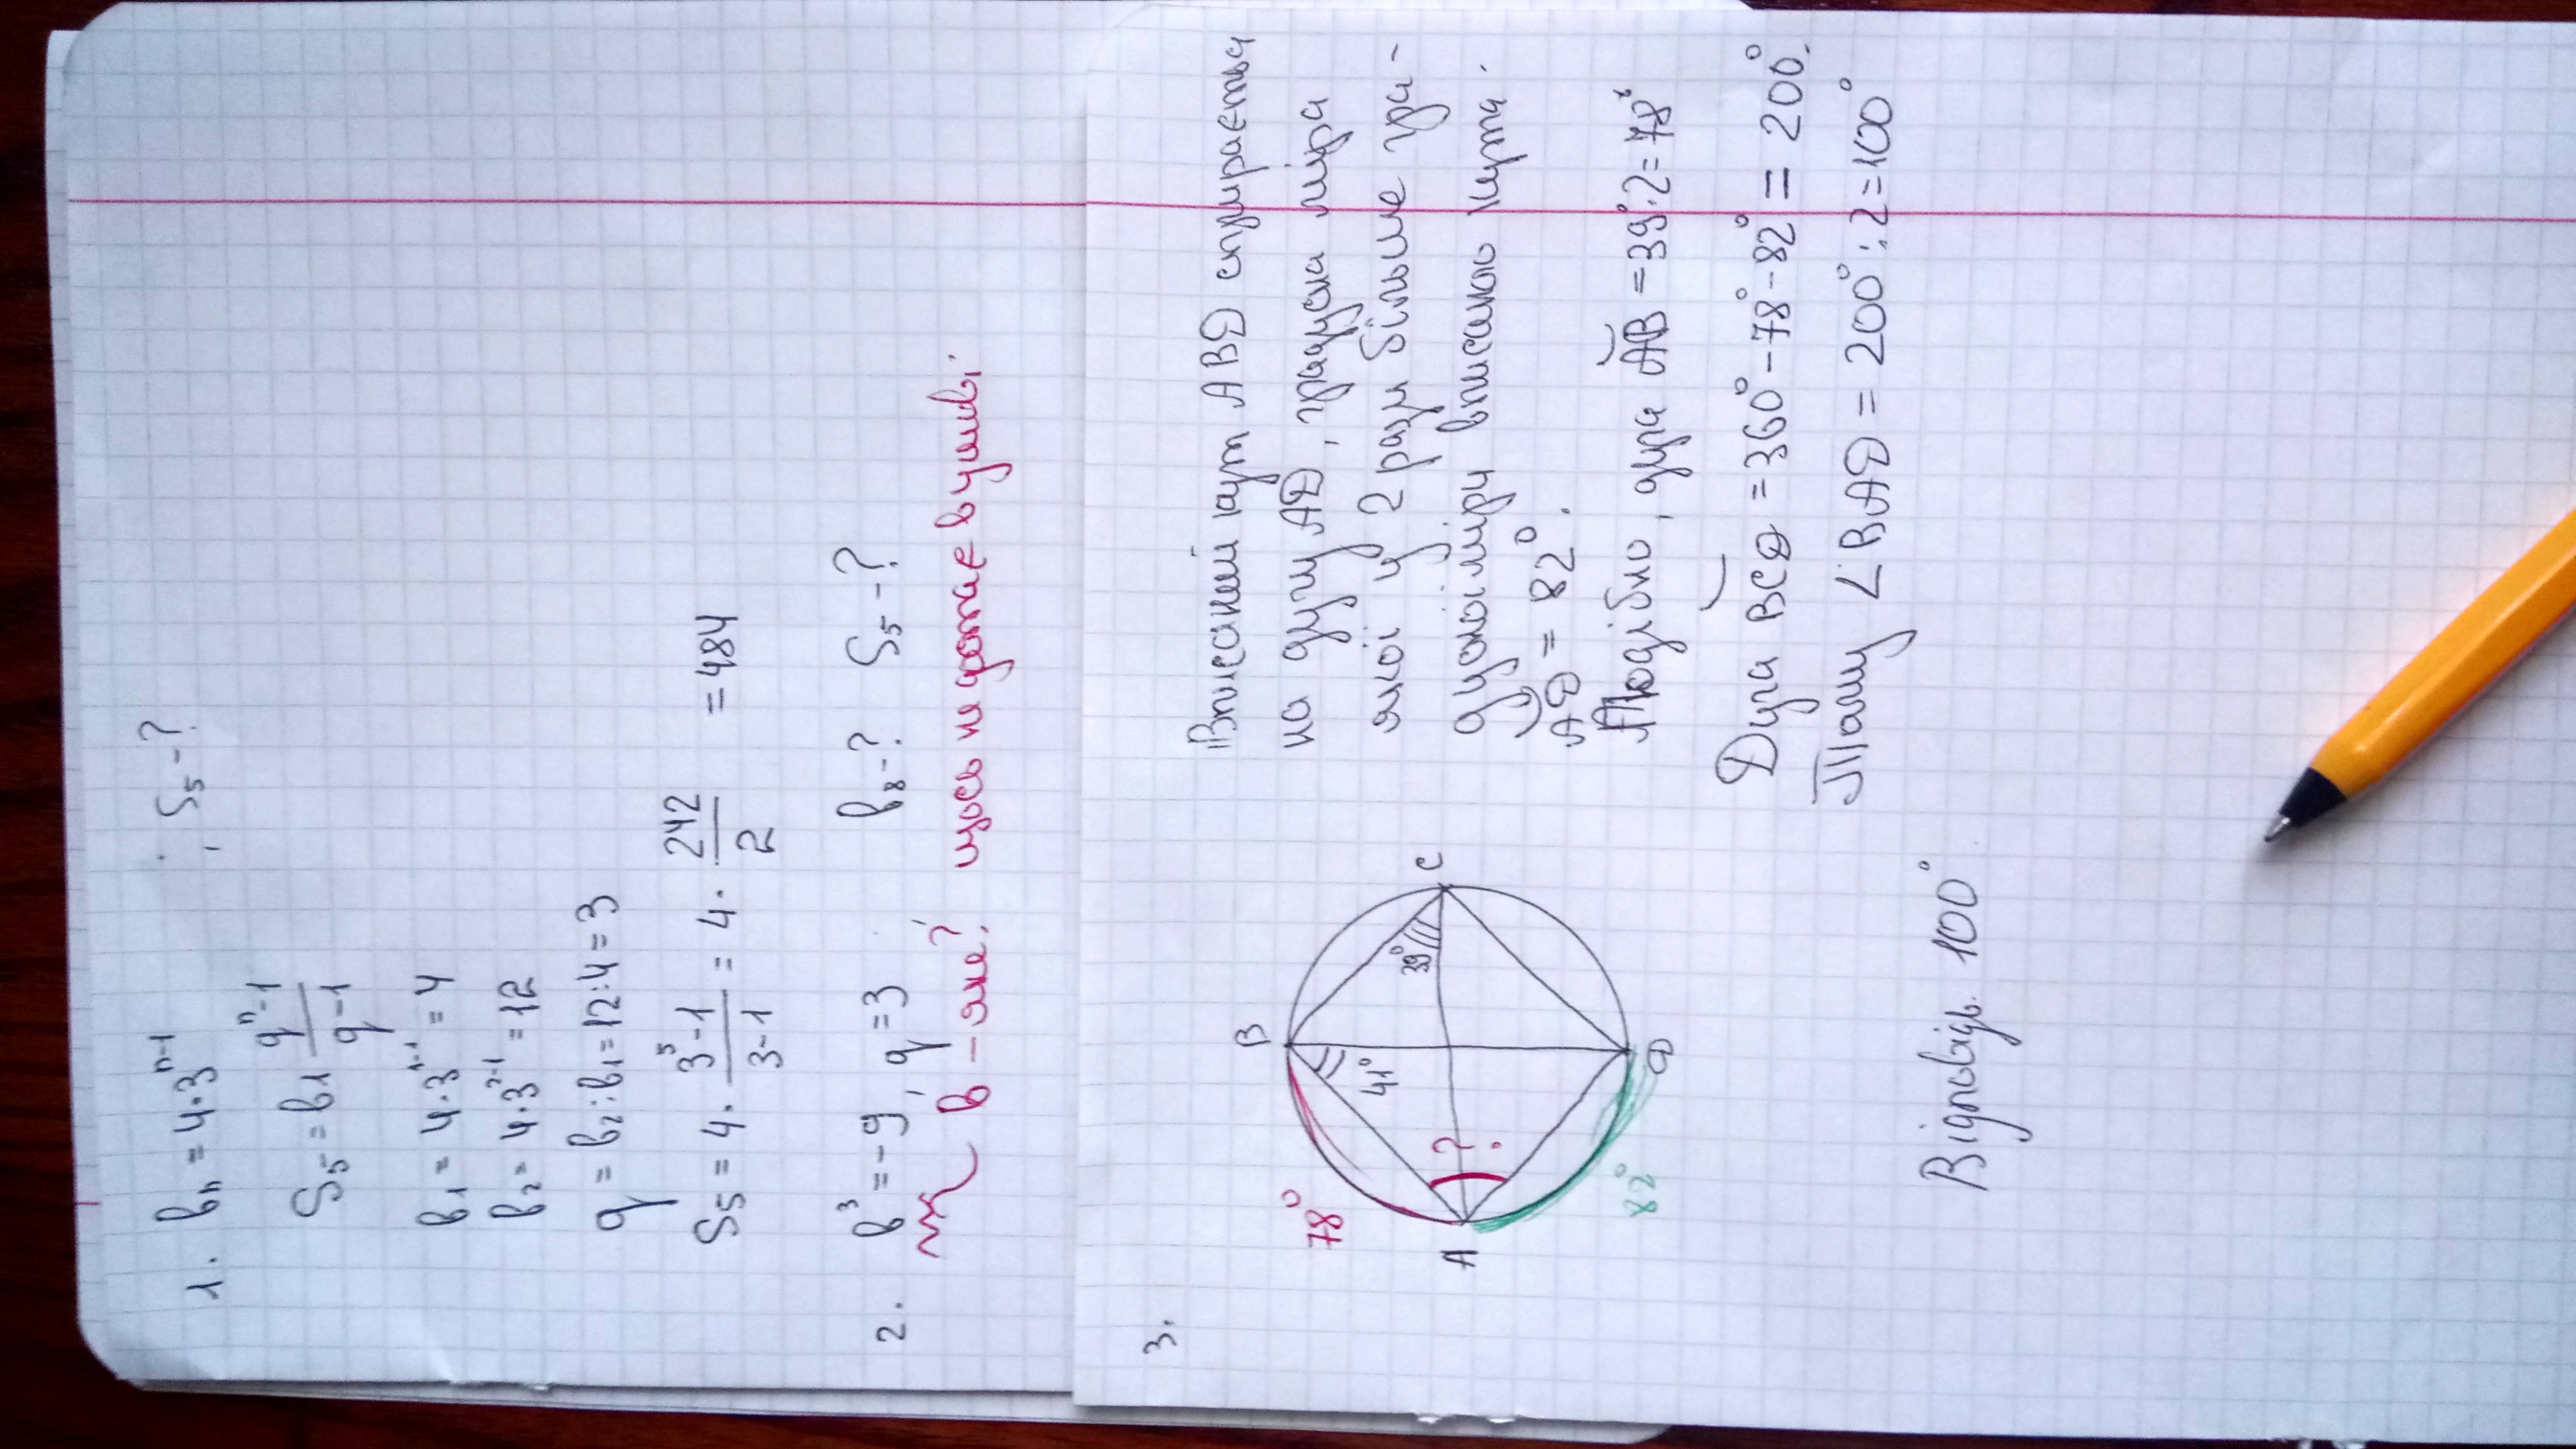 1. bₙ = 4·3ⁿ⁻¹ ; S₅-?
S₅ = b₁ (qⁿ-1)/(q-1)
b₁ = 4·3¹⁻¹ = 4
b₂ = 4·3²⁻¹ = 12
q = b₂:b₁ = 12:4 = 3
S₅ = 4 · (3⁵-1)/(3-1) = 4 · 242/2 = 484
2. b³ = -9, q = 3 b₈-? S₅-?
b - яке? щось не дотає в умові.
3.
Вписаний кут ABD спирається
на дугу AD, градусна міра
якої у 2 рази більше гра-
дусної міри вписаного кута.
AD = 82°.
Подібно, дуга AB = 39°·2 = 78°
Дуга BCD = 360° - 78° - 82° = 200°.
Тому ∠BAD = 200° : 2 = 100°
B
C
39°
41°
?
78°
A
82°
D
Відповідь. 100°